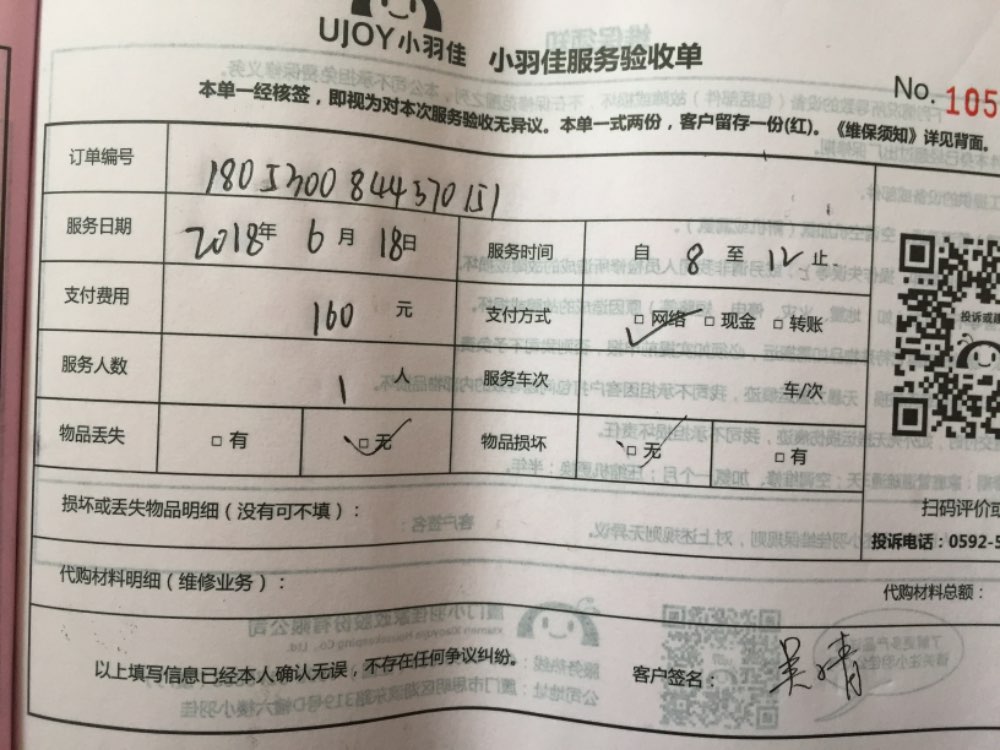 UJOY小羽佳 小羽佳服务验收单
No. 105
本单一经核签，即视为对本次服务验收无异议。本单一式两份，客户留存一份(红)。《维保须知》详见背面。
订单编号 1805300844370151
服务日期 2018年 6月 18日 服务时间 自 8 至 12 止
支付费用 160 元 支付方式 □网络 □现金 □转账
投诉或
服务人数 1 人 服务车次 车/次
物品丢失 □有 □无 物品损坏 □无 □有
扫码评价或
损坏或丢失物品明细（没有可不填）：
投诉电话：0592-5
代购材料明细（维修业务）： 代购材料总额：
以上填写信息已经本人确认无误，不存在任何争议纠纷。 客户签名： 吴晴